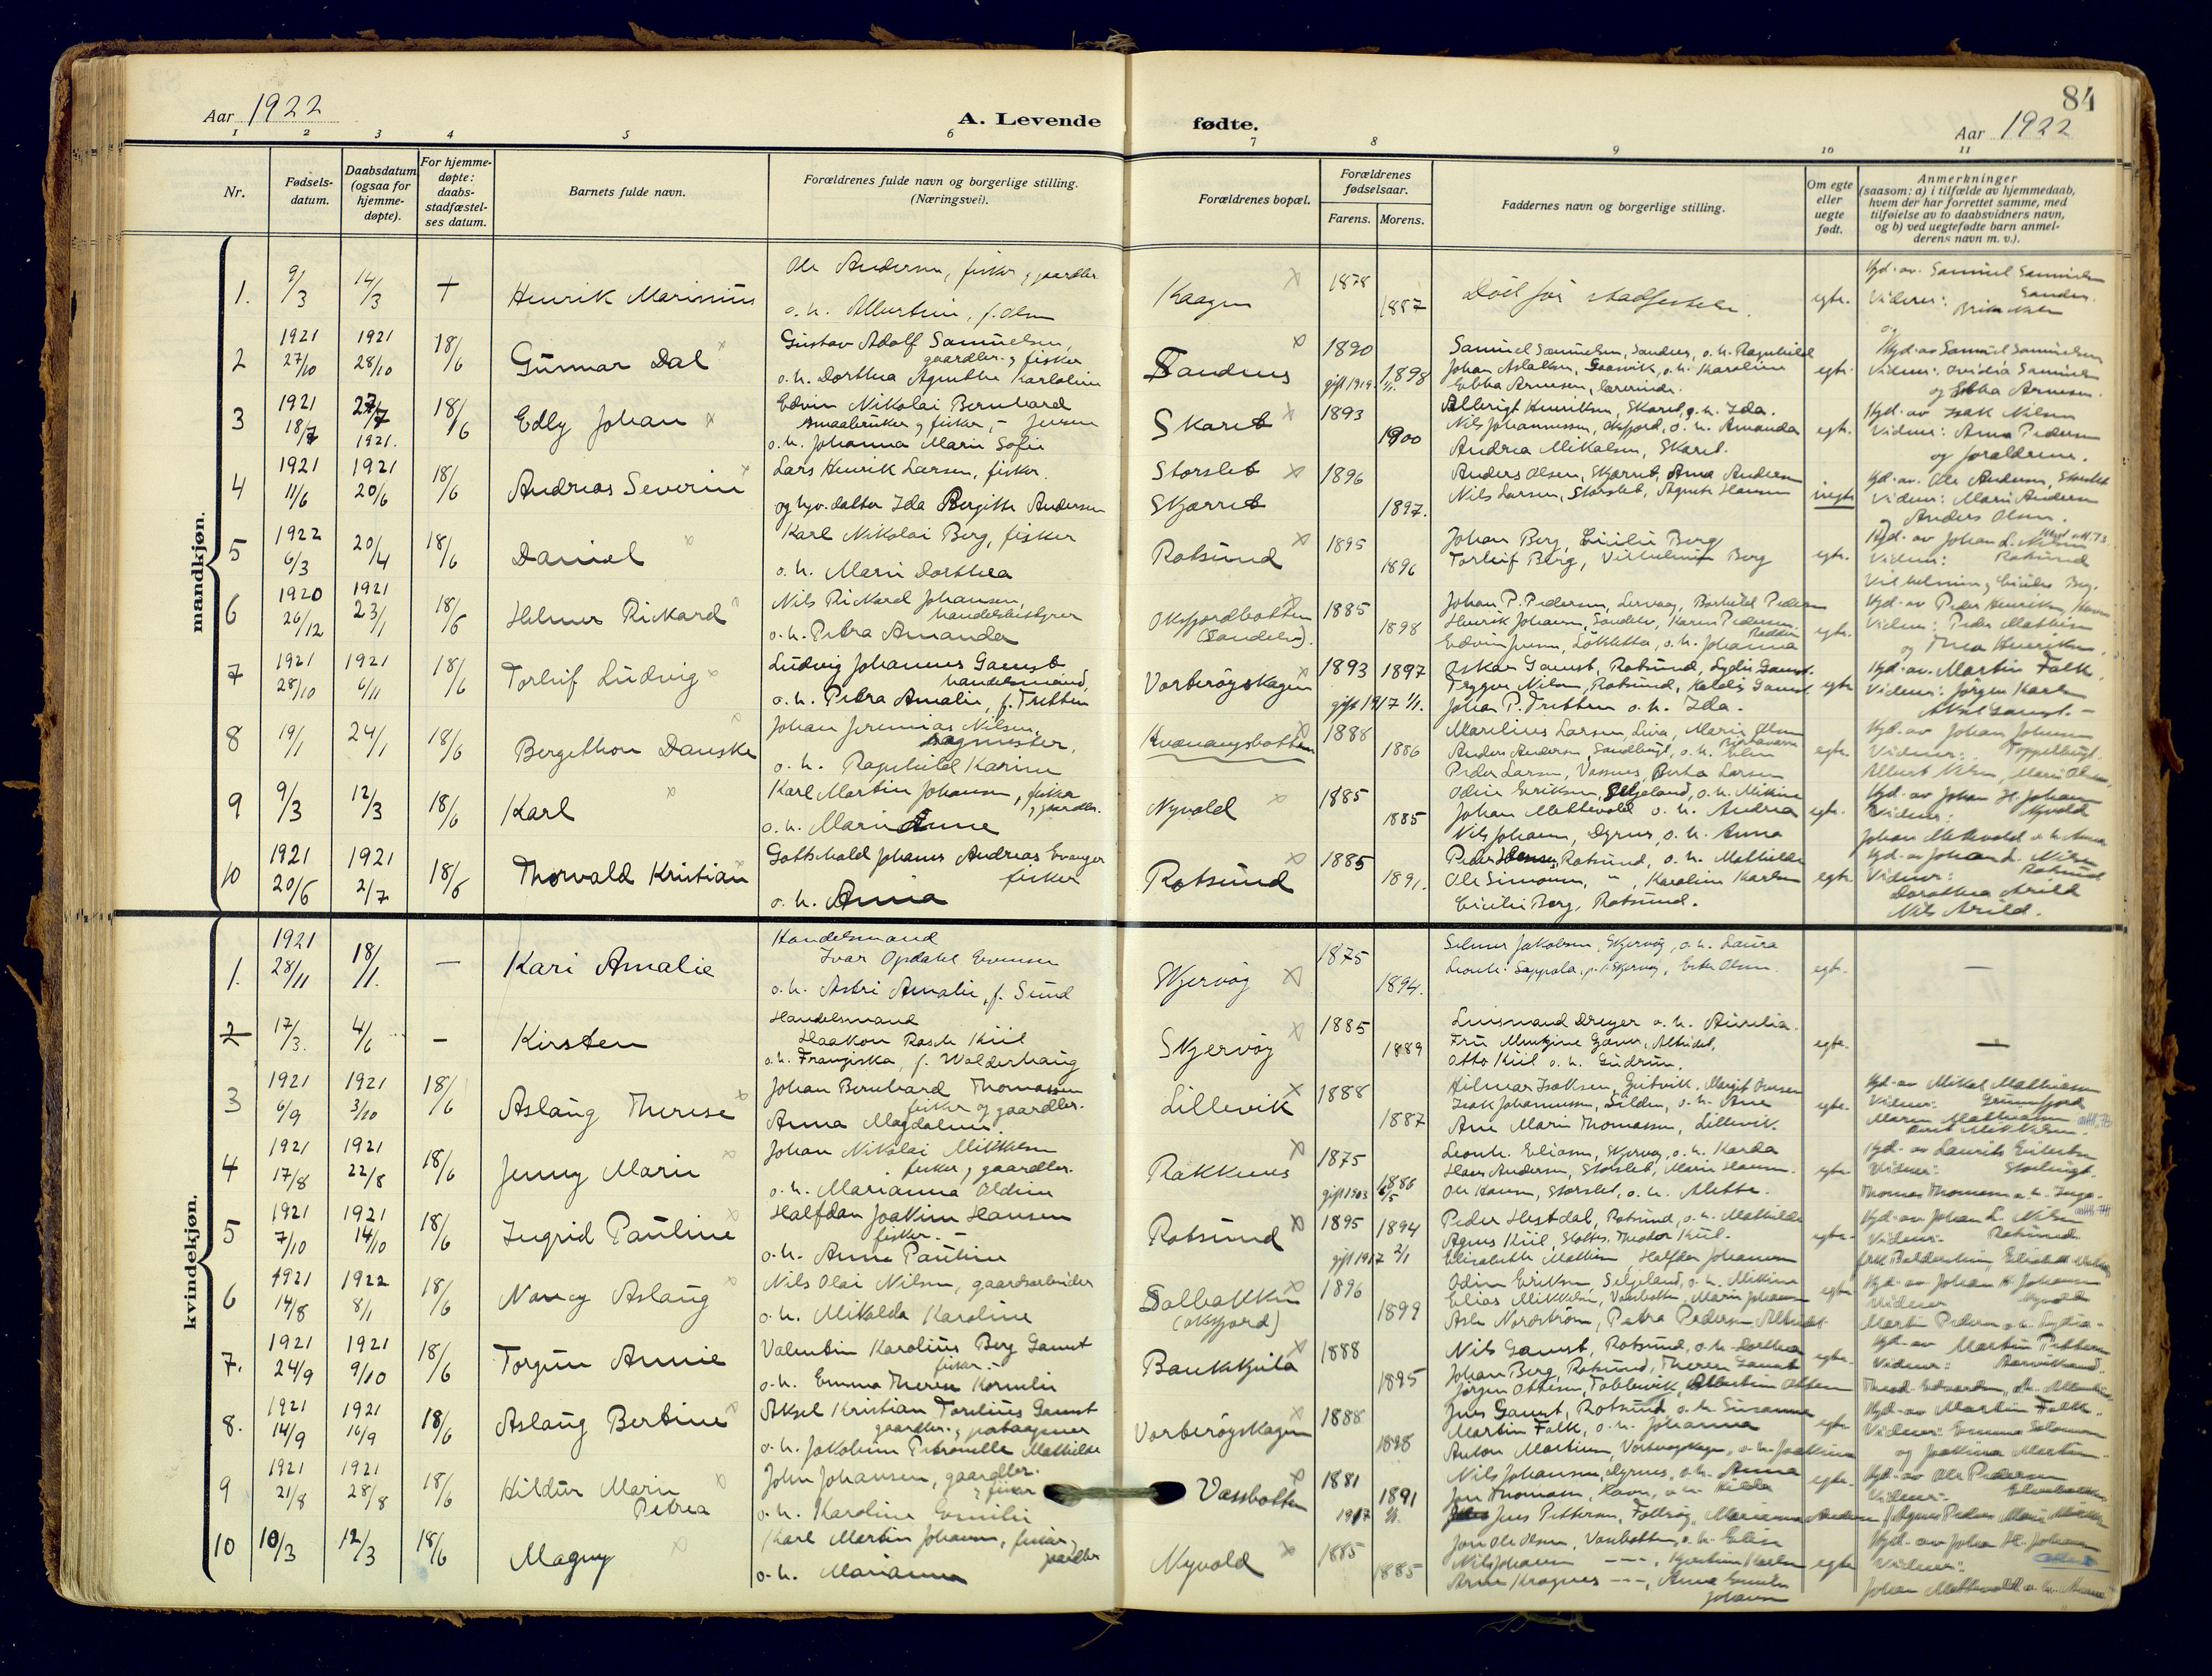 84
Aar 1922
A. Levende fødte.
Aar 1922
1 2 3 4 5 6 7 8 9 10 11
Nr.
Fødsels-
datum.
Daabsdatum
(ogsaa for
hjemme-
døpte).
For hjemme-
døpte:
daabs-
stadfæstel-
ses datum.
Barnets fulde navn.
Forældrenes fulde navn og borgerlige stilling.
(Næringsvei).
Forældrenes bopæl.
Forældrenes
fødselsaar.
Farens. Morens.
Faddernes navn og borgerlige stilling.
Om egte
eller
uegte
født.
Anmerkninger
(saasom: a) i tilfælde av hjemmedaab,
hvem der har forrettet samme, med
tilføielse av to daabsvidners navn,
og b) ved uegtefødte barn anmel-
derens navn m. v.).
mandkjøn.
1. 9/3 14/3 + Henrik Marinius
Ole Andersen, fisker, gaardbr.
o. h. Albertine, f. Olsen
Kaagen 1878 1887
Død før stadfestelsen. egte.
2 1921 27/10 1921 28/10 18/6 Gunnar Dal
Gustav Adolf Samuelsen,
gaardbr. og fisker
o. h. Dorthea Agnethe Karoline
Sandnes 1890 gift 1919 1898
Samuel Samuelsen, Sandnes, o. h. Ragnhild
Johan Aslaksen, o. h. Karoline
Ebba Arnesen, lærerinde. egte.
Hjd. av Samuel Samuelsen
og Ebba Arnesen.
3 1921 18/7 27/7 1921. 18/6 Edly Johan
Edvin Nikolai Bernhard
smaabruker og fisker, - Jensen
o. h. Johanna Marie Sofie
Skaret 1893 1900
Albrigt Henriksen, Skaret, o. h. Ida.
Nils Johannessen, Oksfjord, o. h. Amanda
Andrea Mikalsen, Skaret. egte.
Hjd. av Isak Nilsen
Vidner: Anna Pedersen
og forældrene.
4 1921 11/6 1921 20/6 18/6 Andreas Severin
Lars Henrik Larsen, fisker.
og hyv. datter Ida Bergitte Andersen
Storslet
Skjærret 1896 1897.
Anders Olsen, Skjærret, Anna Andersen
Nils Larsen, Storslet, Agnete Hansen uegte
Hjd. av. Ole Andersen,
Vidner: Marie Andersen
Anders Olsen.
5 1922 6/3 20/4 18/6 Daniel
Karl Nikolai Berg, fisker
o. h. Marie Dorthea
Rotsund 1895 1896
Johan Berg, Cicilie Berg
Torleif Berg, Vilhelmine Berg egte.
Hjd. av Johan L. Nilsen
Vidner: Rotsund
Vilhelmine, Cicilie Berg.
6 1920 26/12 1921 23/1 18/6 Helmer Rikard
Nils Rikard Johansen,
handelsbestyrer
o. h. Petra Amanda
Oksfjordbotten
(Sandelv). 1885 1898
Johan P. Pedersen, Lervaag, Borhild Pedersen
Henrik Johansen, Sandelv, Karen Pedersen.
Edvin Jensen, Lökkletta, o. h. Johanna egte.
Hjd. av Peder Henriksen,
Vidner: Peder Mathisen
og Thea Henriksen.
7 1921 28/10 1921 6/11 18/6 Torleif Ludvig
Ludvig Johannes Gamst
handelsmand,
o. h. Petra Amalie, f. Tretten
Vorterøyskagen 1893 1897
gift 1917 1/1.
Oskar Gamst, Rotsund, Lydia Gamst.
Trygve Nilsen, Rotsund, Gamst
Johan P. Tretten o. h. Ida. egte
Hjd. av. Martin Falk.
Vidner: Jørgen Karlsen
8 19/1 24/1 18/6 Bergethon Danske
Johan Jeremias Nilsen,
sagmester,
o. h. Ragnhild Karine
Kvænangsbotten 1888 1886
Marelius Larsen, Marie Olsen
Anders Andersen, Sandbugt, o. h. Elen
Peder Larsen, Vassnes, Berta Larsen egte.
Hjd. av Johan Johansen
Vidner: Toppelbugt.
Albert Nilsen, Marie Olsen.
9 9/3 12/3 18/6 Karl
Karl Martin Johansen, fisker
, gaardbr.
o. h. Marie Anne
Nyvold 1885 1885
Odin Eriksen, Selgeland, o. h. Mikine
Johan Mettevold o. h. Andrea
Nils Johansen, Dyrnes, o. h. Anna egte.
Hjd. av Johan H. Johansen
Vidner: Nyvold
Johan Mettevold o. h. Anna
10 1921 20/6 1921 2/7 18/6 Thorvald Kristian
Gottskald Johans Andreas Evanger
fisker
o. h. Anna
Rotsund 1885 1891.
Peder Hansen, Rotsund, o. h. Mathilde
Ole Simonsen, " , Karoline Karlsen
Cicilie Berg, Rotsund. egte.
Hjd. av Johan L. Nilsen
Vidner: Rotsund
Dorothea Arild
Nils Arild.
kvindekjøn.
1. 1921 28/11 18/1 — Kari Amalie
Handelsmand
Ivar Opdahl Evensen
o. h. Astri Amalie, f. Sund
Skjervøy 1875 1894.
Selmer Jakobsen, Skjervøy, o. h. Laura
Leonh. Seppola, p. t. Skjervøy, Ester Olsen. egte. —
2 17/3. 4/6 — Kirsten
Handelsmand
Haakon Rasch Kiil
o. h. Franziska, f. Walderhaug
Skjervøy 1885 1889
Lensmand Dreyer o. h. Aurelia.
Otto Kiil o. h. Gudrun. egte. —
3 1921 6/9 1921 3/10 18/6 Aslaug Therese
Johan Bernhard Thomassen
fisker og gaardbr.
Anna Magdalene.
Lillevik 1888 1887
Hilmar Isaksen, Geitvik, Margit Iversen
Isak Johannessen, Silden, o. h. Ane
Ane Marie Thomassen, Lillevik. egte.
Hjd. av Mikal Mathiassen
Vidner: Grunnfjord
Maren Mathiassen
4 1921 17/8 1921 22/8 18/6 Jenny Marie
Johan Nikolai Mikkelsen
fisker, gaardbr.
o. h. Marianna Oldine
Rakkenes 1875 1886
gift 1903 6/5
Leonh. Eliassen, Skjervøy, o. h. Karda
Hans Andersen, Storslet, Marie Hansen.
Ole Hansen, Storslet, o. h. Mette. egte
Hjd. av Laurits Eilertsen
Vidner: Storbugt.
Thomas Thomassen o. h. Inga.
5 1921 7/10 1921 14/10 18/6 Ingrid Pauline
Halfdan Joakim Hansen
fisker. -
o. h. Anna Pauline
Rotsund 1895 1894
gift 1917 2/1
Peder Hestdal, Rotsund, o. h. Mathilde
Agnes Kiil, Theodor Kiil.
Elisabeth Mathisen, Halfdan Johansen egte.
Hjd. av Johan L. Nilsen
Vidner: Rotsund
6 1921 14/8 1922 8/1 18/6 Nancy Aslaug
Nils Olai Nilsen, gaardsarbeider
o. h. Mikalda Karoline
Solbakken
(Oksfjord) 1896 1899
Odin Eriksen, Selgeland, o. h. Mikine
Elias Mikkelsen, Vassbotten, Marie Johansen
Asle Nordstrøm, Petra Pedersen, Alteidet. egte
Hjd. av Johan H. Johansen
Vidner Nyvold
Martin Pedersen o. h. Lydia.
7. 1921 24/9 1921 9/10 18/6 Torgun Annie
Valentin Karolius Berg Gamst
fisker.
o. h. Emma Therese Kornelie
Baukkjila 1888 1895
Nils Gamst, Rotsund, o. h. Dorthea
Johan Berg, Rotsund, Therese Gamst
Jørgen Ottesen, Tablevik, Albertine Ottesen egte.
Hjd. av Martin Pettersen
Vidner: Aarvikand
8. 1921 14/9 1921 16/9 18/6 Aslaug Bertine
Aksel Kristian Torelius Gamst
gaardbr. og postaapner
o. h. Jakobine Petronelle Mathilde
Vorterøyskagen 1888 1898
Jens Gamst, Rotsund o. h. Susanna
Martin Falk, o. h. Johanna
Anton Martinsen, o. h. Joakima egte
Hjd. av Martin Falk.
Vidner: Emma Salomonsen
og Joakima Martinsen.
9 1921 21/8 1921 28/8 18/6 Hildur Marie
Petrea
John Johansen, gaardbr.
, fisker
o. h. Karoline Emilie
Vassbotten 1881 1891
1917
Nils Johansen, Dyrnes, o. h. Anna
Jens Thomassen, Havn, o. h. Hilda
Jens Pettersen, Follesøy, Marianna Andersen egte.
Hjd. av Ole Pedersen
Vidner:
10 10/3 12/3 18/6 Magny
Karl Martin Johansen, fisker,
gaardbr.
o. h. Marianna
Nyvold 1885 1885
Jon Ole Olsen, Vassbotten, o. h. Elise
Nils Johansen — " —, Kjerstine Karlsen
Arne Kragnes — " —, Anna Emilie
Johansen egte
Hjd. av Johan H. Johansen
Vidner:
Johan Mettevold o. h. Anna